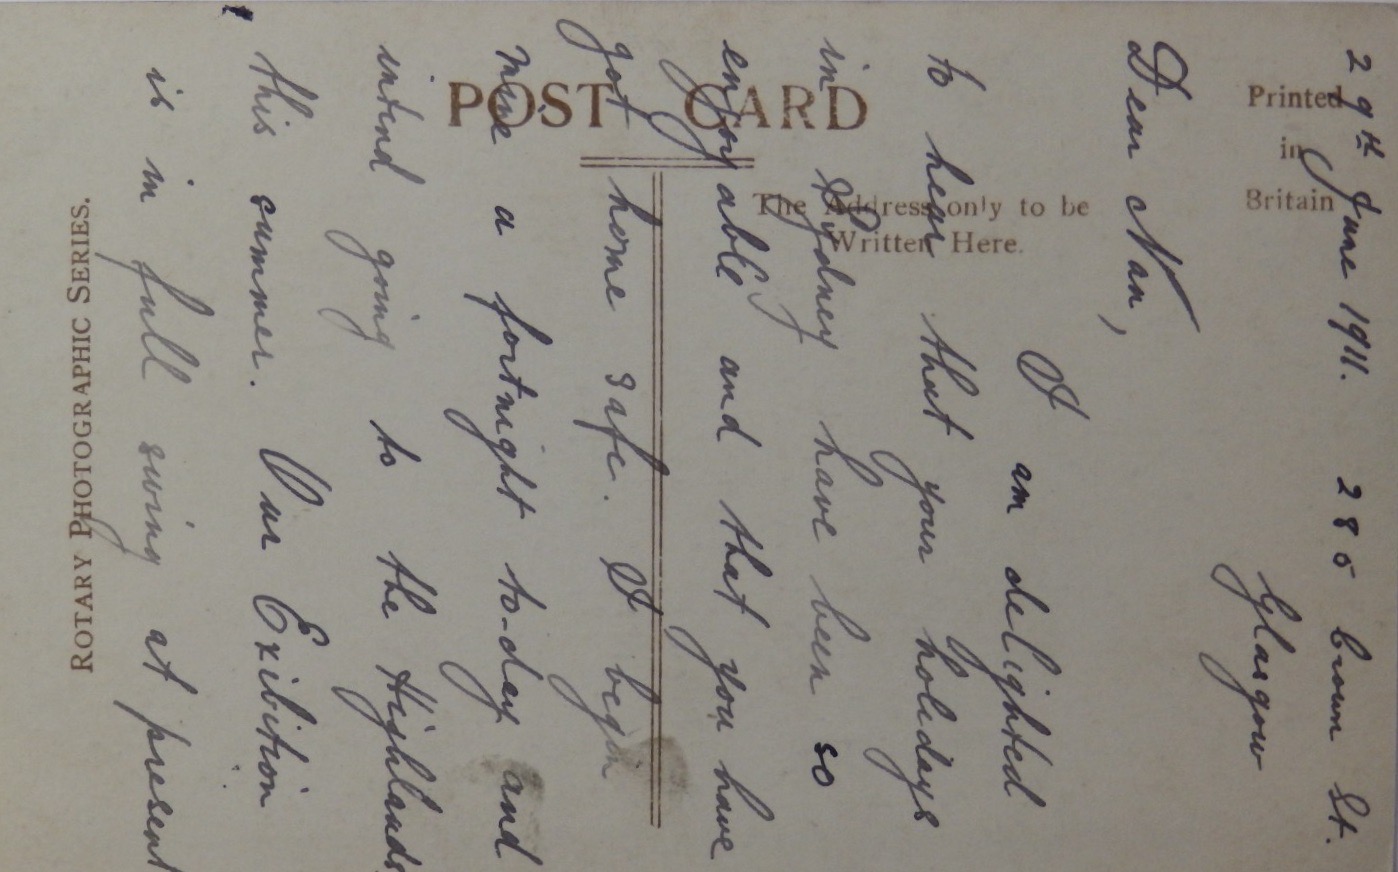 POST CARD
Printed
in
Britain
The Address only to be
Written Here.
ROTARY PHOTOGRAPHIC SERIES.
29th June 1911. 285 Crown St.
Glasgow
Dear Nan,
I am delighted
to hear that your holidays
in Sydney have been so
enjoyable and that you have
got home safe. I begin
mine a fortnight to-day and
intend going to the Highlands
this summer. Our Exibition
is in full swing at present